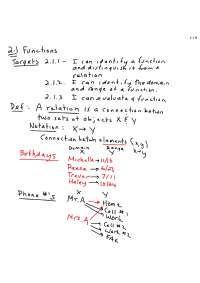 2.1 Functions
Targets 2.1.1 - I can identify a function
and distinguish it from a
relation
2.1.2. I can identify the domain
and range of a function.
2.1.3 I can evaluate a function
Def: A relation is a connection between
two sets of objects X & Y
Notation: X→Y
Connection between elements (x,y)
x→y
Domain Range
X Y
Birthdays
Michelle→11/13
Trevor→7/11
Haley→
X Y
Phone #'s Mr. A Home
Cell #1
Work
Mrs. A Cell #2
Work #2
Fax